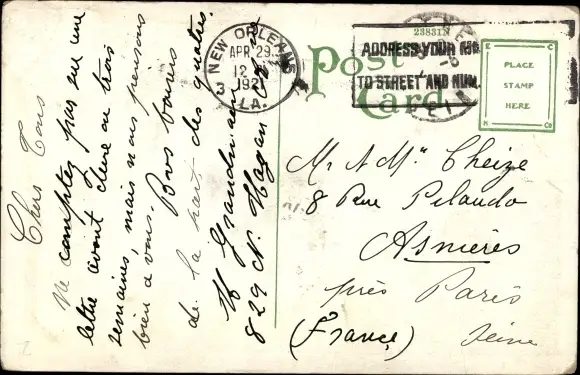 Chers Tous
Ne comptez pas sur une
lettre avant deux ou trois
semaines, mais nous pensons
bien a vous. Bons baisers
de la part des quatre.
H Grandjean
829 N. Hagan
NEW ORLEANS
APR. 29
12
3
192
LA.
23831N
Post
Card
ADDRESS YOUR
TO STREET AND NUM.
PLACE
STAMP
HERE
Mr & Mme Cheize
8 Rue Pilaudo
Asnières
près Paris
(France) Seine